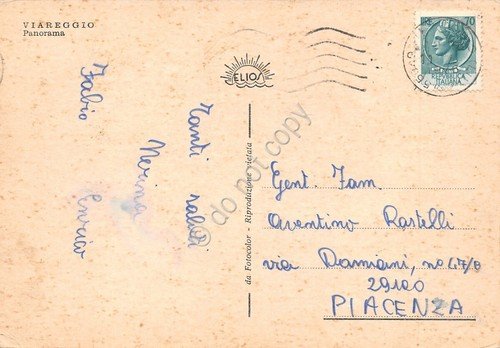 VIAREGGIO
Panorama
ELIOS
Tanti saluti
Nerina
Fabio
Enrico
da Fotocolor - Riproduzione vietata
do not copy
70
Gent. Fam.
Aventino Rastelli
via Damiani, no 47/B
29100
PIACENZA